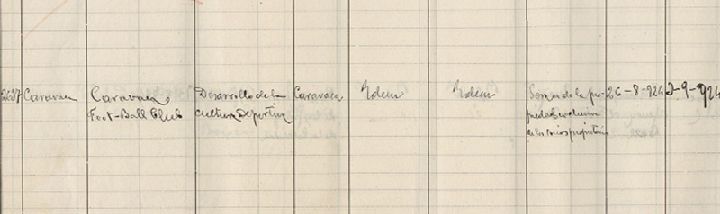 Caravaca
Caravaca
Foot-Ball Club
Desarrollo de la
cultura deportiva
Caravaca
Idem
Idem
de la pro-
piedad exclusiva
de los socios propietarios
26-8-924
2-9-924